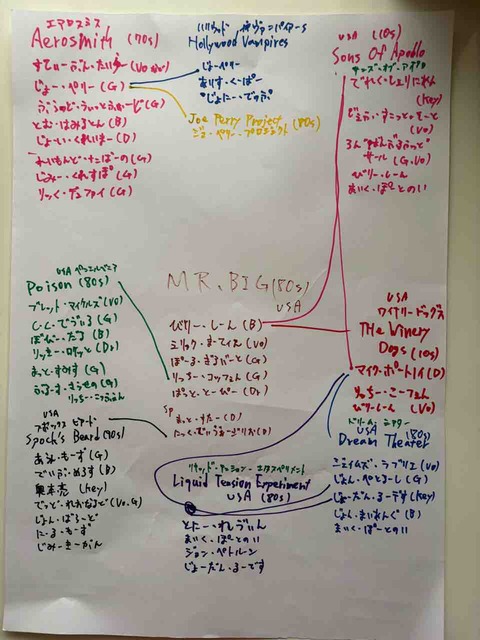 エアロスミス
Aerosmith (70s)
すてぃーぶん・たいらー (Vo
じょー・ぺりー (G)
ぶらっど・うぃっとふぉーど (G)
とむ・はみるとん (B)
じょーい・くれいまー (D)
れいもんど・たばーの (G)
じみー・くれすぽ (G)
りっく・デュファイ (G)
ハリウッド・ヴァンパイアーズ
Hollywood Vampires
じょーぺりー
ありす・くーぱー
じょにー・でっぷ
Joe Perry Project (80s)
ジョー・ペリー・プロジェクト
USA (10s)
Sons Of Apollo
サンズ・オブ・アポロ
でれく・しぇりにあん
(Key)
じぇふ・すこっと・そーと
(Vo)
ろん"ばんぶるふっと"
サール (G.Vo)
びりー・しーん
まいく・ぽーとのい
USA ペンシルベニア
Poison (80s)
ブレット・マイケルズ (Vo)
C.C.でヴィる (G)
ぼびー・だる (B)
りっきー・ロケット (Ds)
(G)
(G)
りっちー・こっつぇん
MR. BIG (80s)
USA
びりー・しーん (B)
エリック・まーてぃん (Vo)
ぽーる・ぎるばーと (G)
りっちー・コッツェン (G)
ぱっと・とーぴー (Dr)
SP
まっと・すたー (D)
にっく・でぃうぁーじりお (D)
USA
ワイナリードッグス
The Winery
Dogs (10s)
マイク・ポートノイ (D)
りっちー・こーつぇん
びりーしーん (Vo)
ドリーム・シアター
USA (80s)
Dream Theater
ジェイムズ・ラブリエ (Vo)
じょん・ぺとるーし (G)
じょーだん・るーです (Key)
じょん・まいあんぐ (B)
まいく・ぽーとのい
USA
スポックス ビアード
Spock's Beard (90s)
あらん・もーず (G)
でいぶ・めろす (B)
奥本亮 (Key)
てっど・れおなるど (Vo.G)
にーる・もーず
じみー・きーがん
リキッド・テンション・エクスペリメント
Liquid Tension Experiment
USA (80s)
とにー・れヴぃん
まいく・ぽーとのい
ジョン・ペトルーシ
じょーだん・るーです